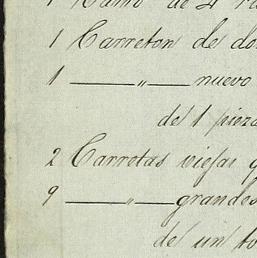 1 Carro de 4 r
1 Carreton de do
1 — " — nuevo
de 1 pieza
2 Carretas viejas y
9 — " — grandes
de un to